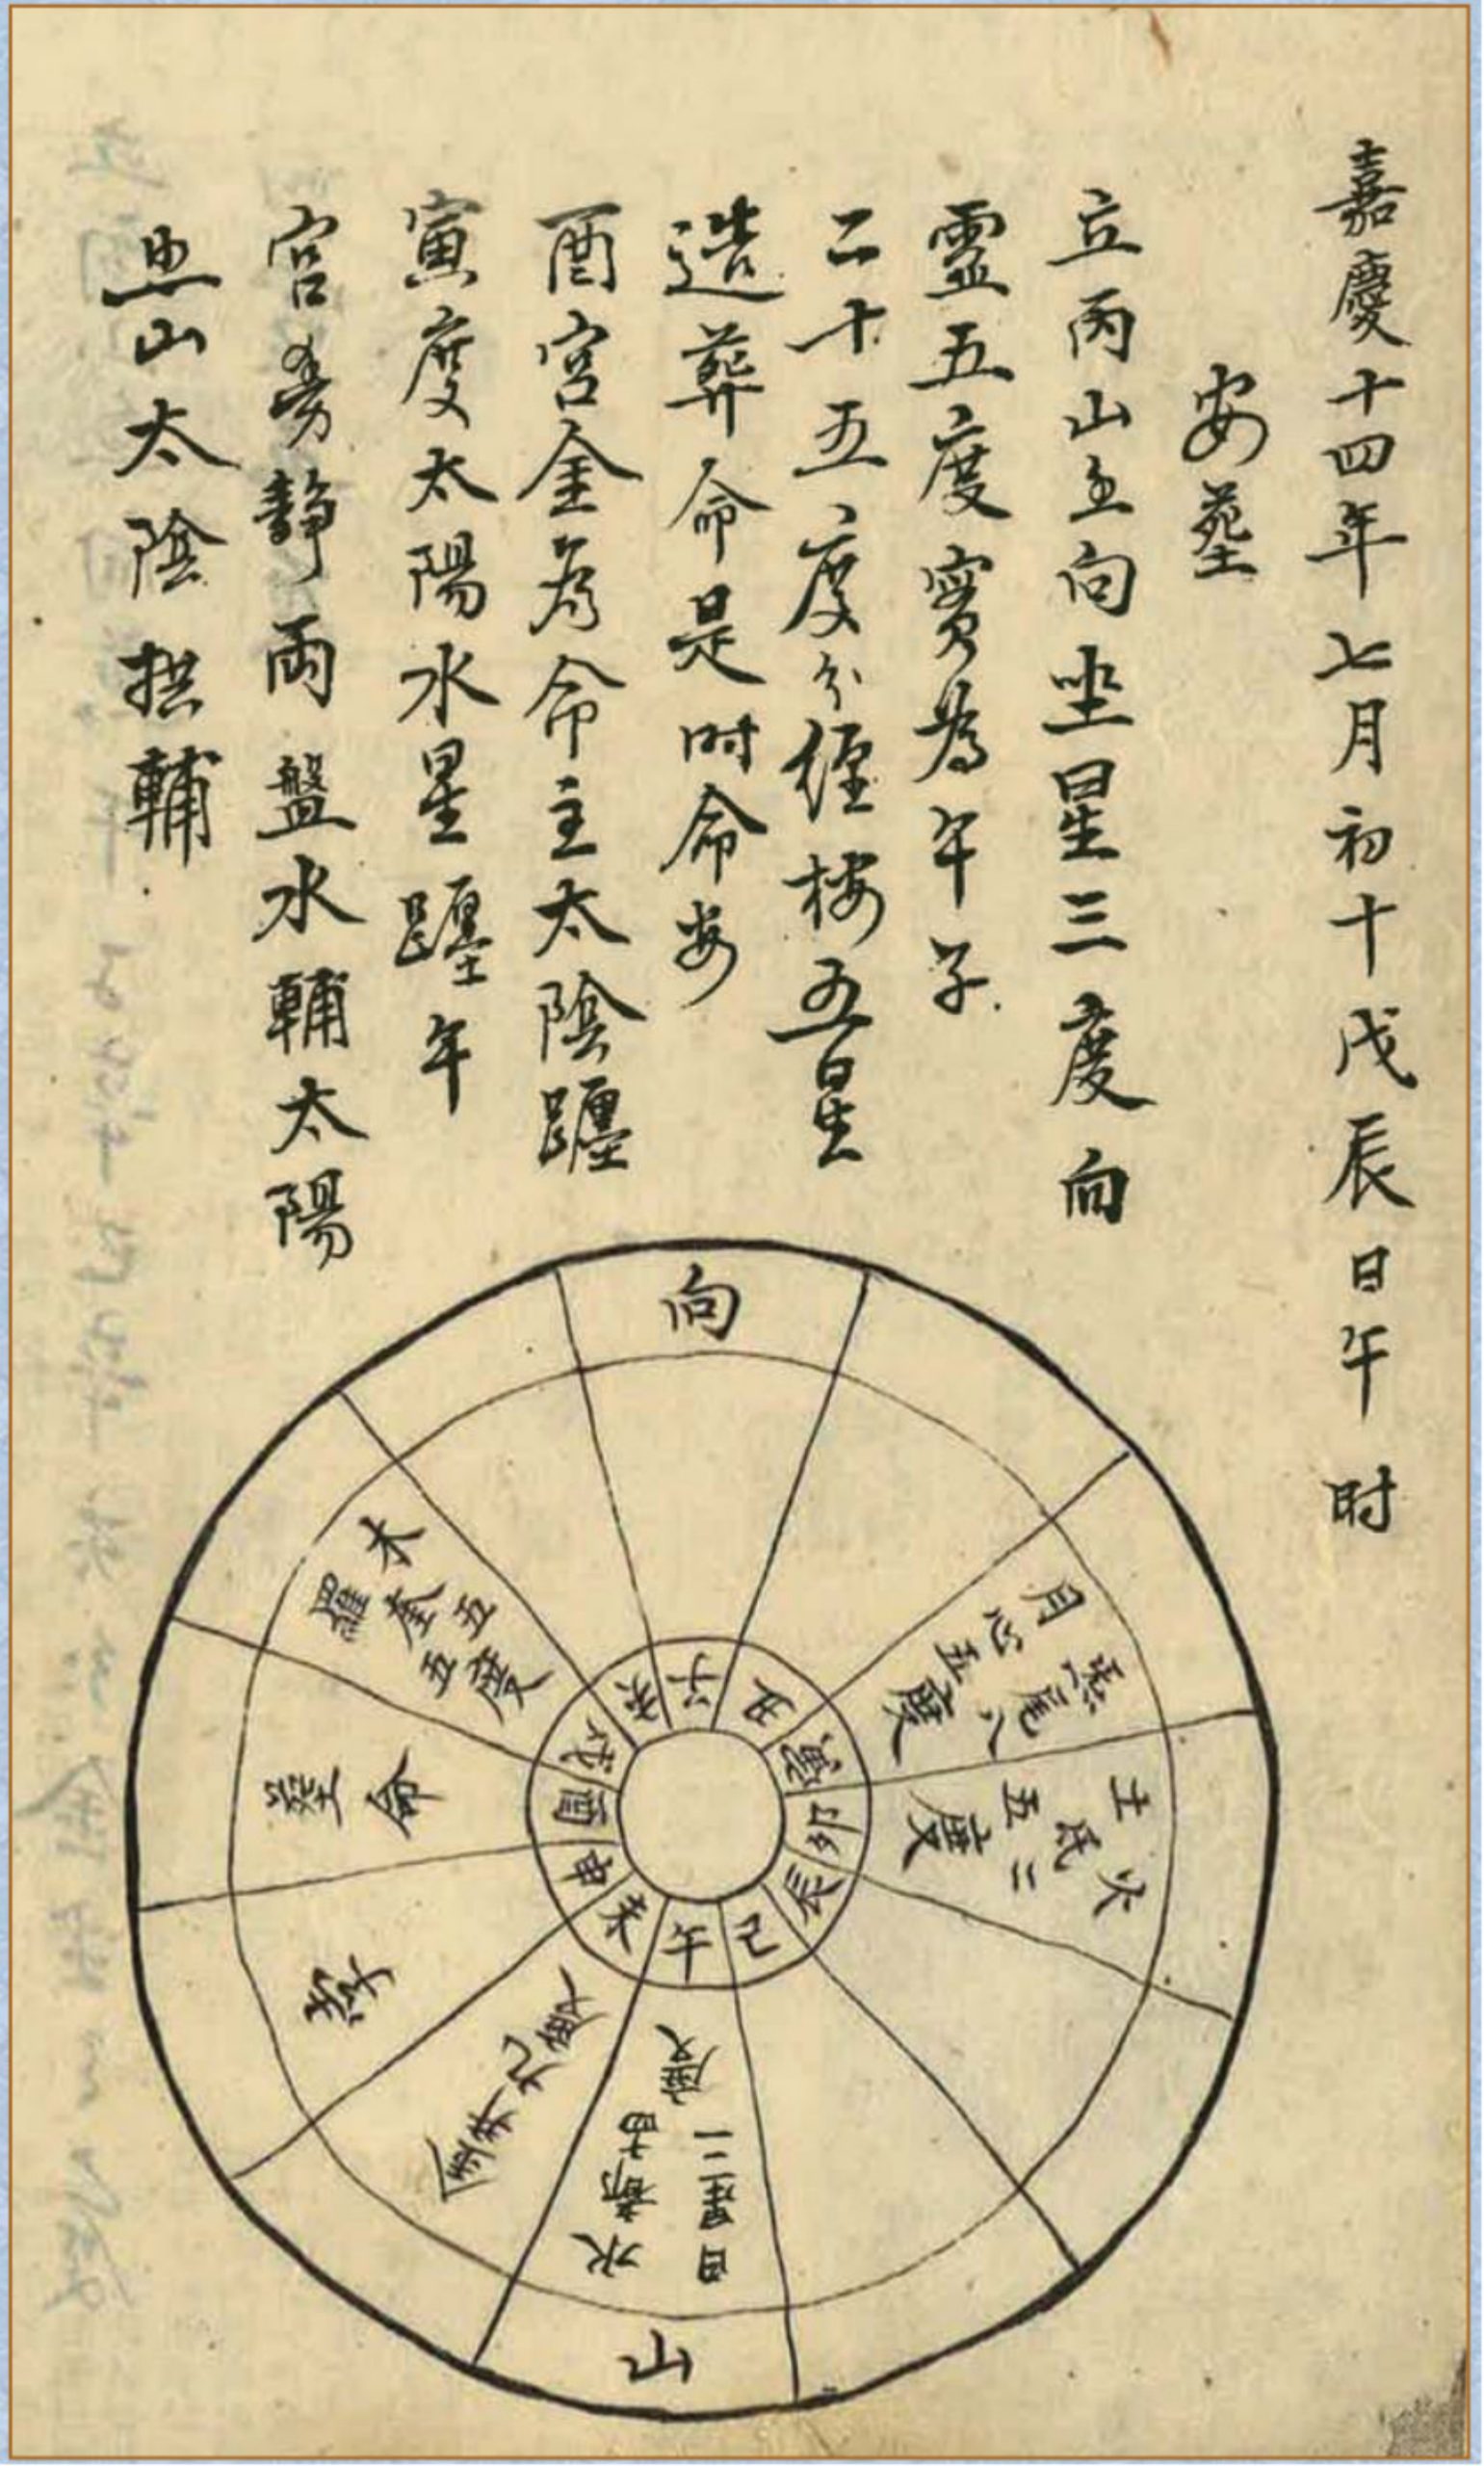 嘉慶十四年七月初十戊辰日午时
安塟
立丙山壬向坐星三度向
靈五度實為午子
二十五度分經楼五星
造葬命是时命安
酉宮金為命主太陰躔
寅度太陽水星躔年
宮旁静両盤水輔太陽
照山太陰拱輔
向
木奎五度
羅五
命
孛
金井九度
水
日星一二度
山
月心五度
炁尾八
土五度
火氐二
子
丑
寅
卯
辰
巳
午
未
申
酉
戌
亥